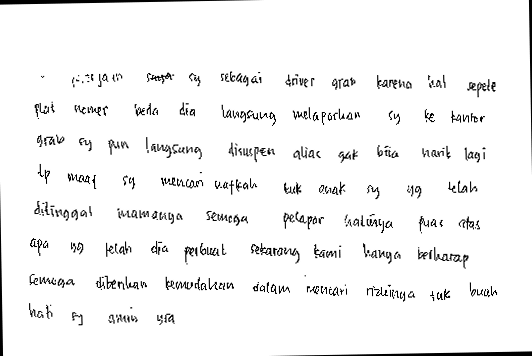 sy sebagai driver grab karena hal sepele
plat nomer beda dia langsung melaporkan sy ke kantor
grab sy pun langsung disuspen alias gak bisa narik lagi
tp maaf sy mencari nafkah tuk anak sy yg telah
ditinggal mamanya semoga pelapor hatinya puas atas
apa yg telah dia perbuat sekarang kami hanya berharap
semoga diberikan kemudahan dalam mencari rizkinya tuk buah
hati sy amin yra